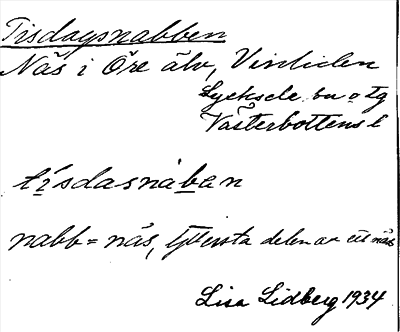 Tisdagsnabben
Näs i Öre älv, Vinliden
Lycksele. bu o tg
Västerbottens l
tísdasnàban
nabb = näs, yttersta delen av ett näs
Lisa Lidberg 1934